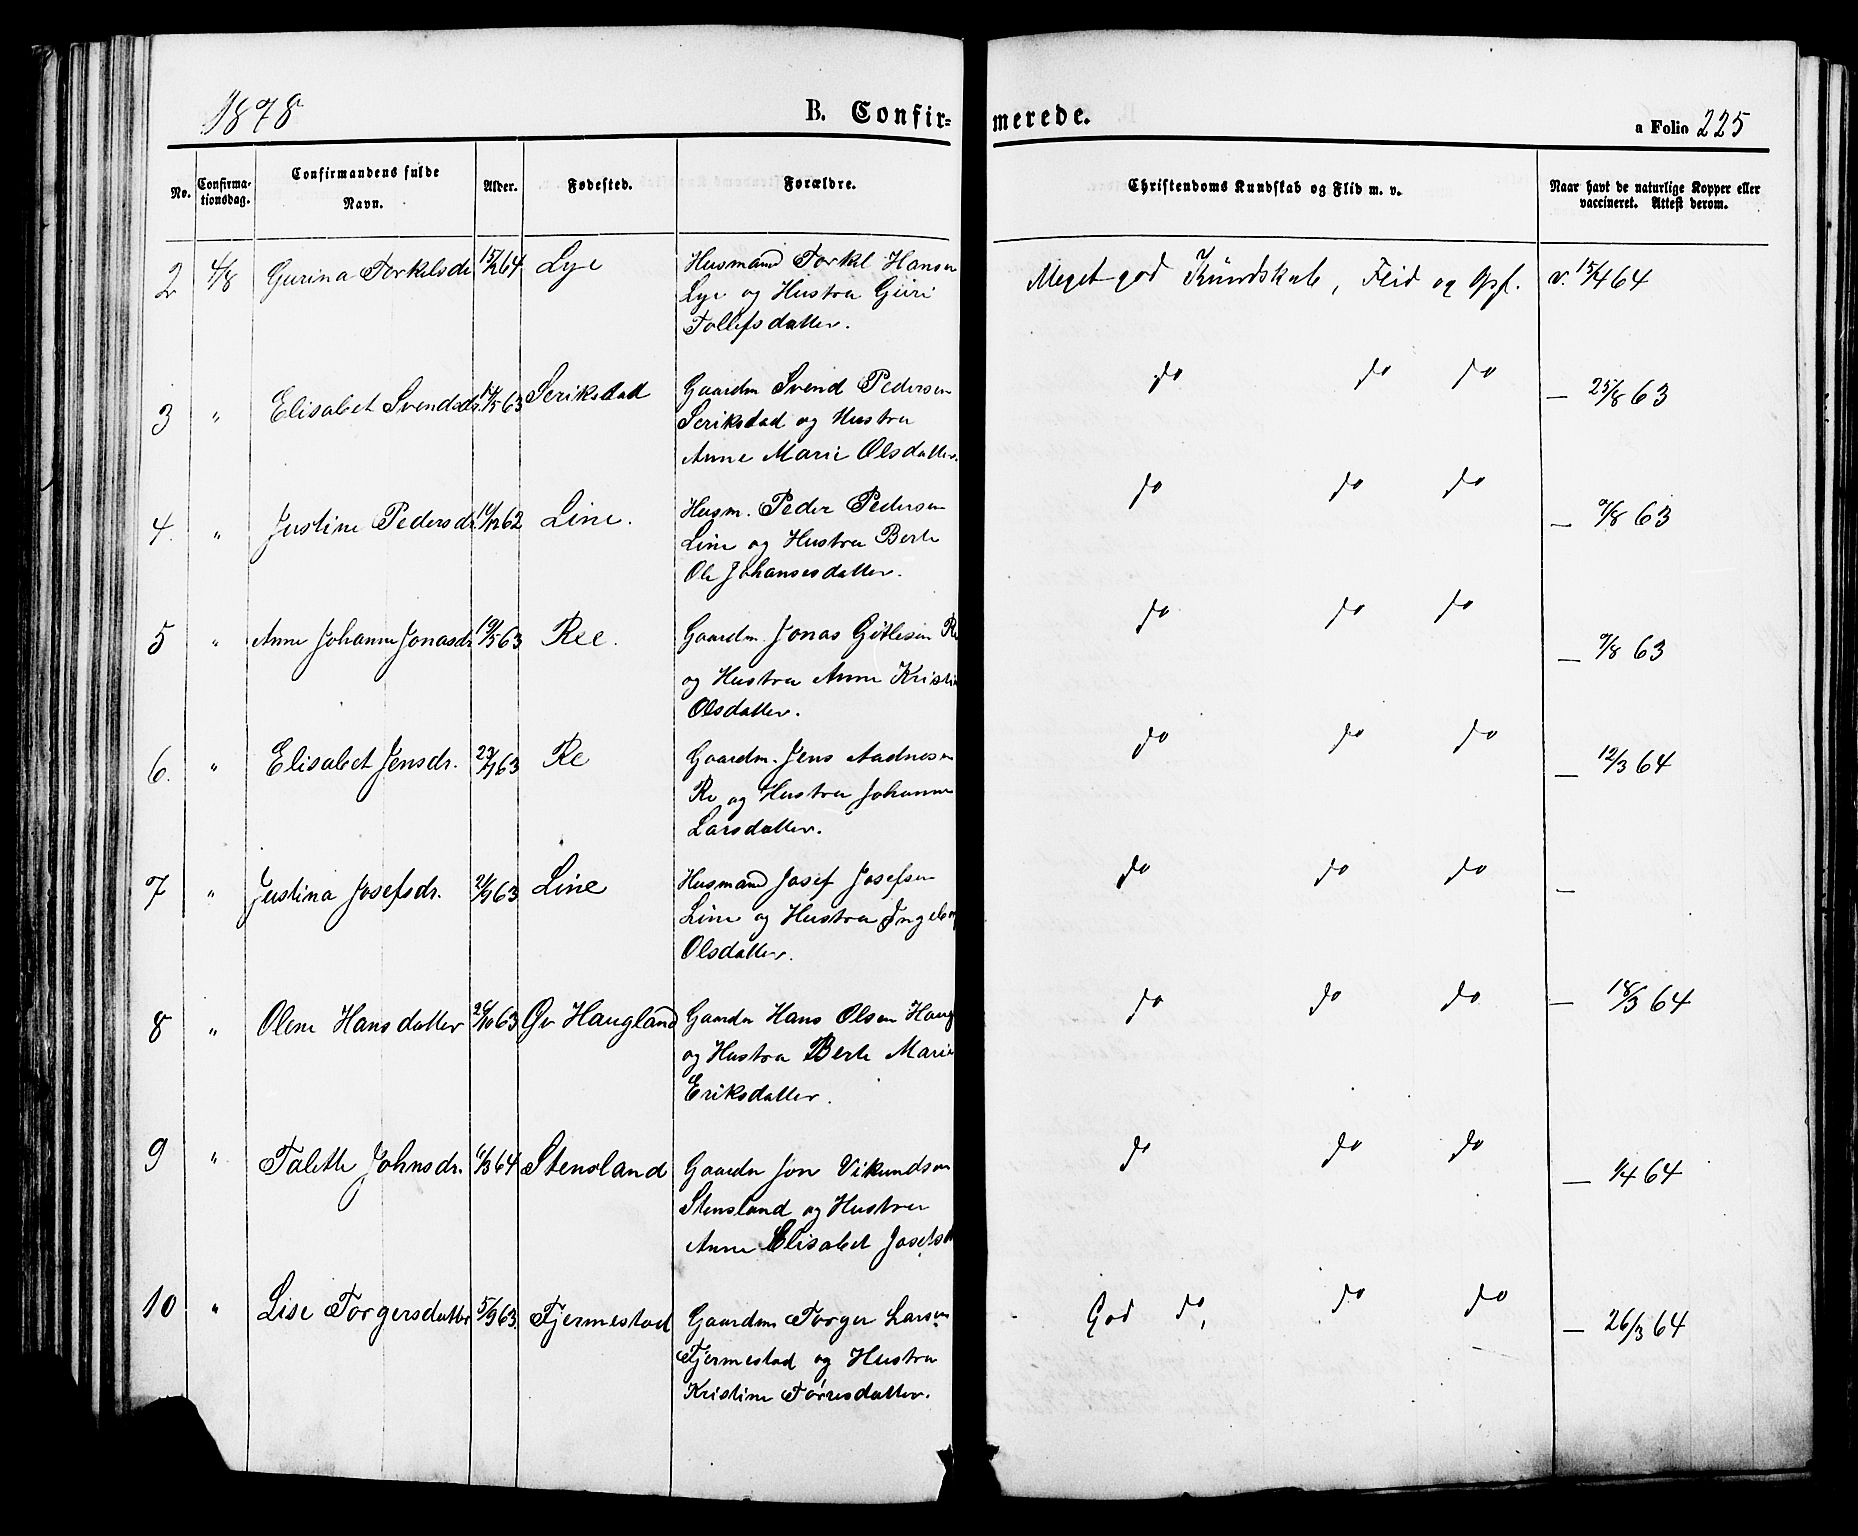 1878
B. Confirmerede.
a Folio 225
No.
Confirmationsdag.
Confirmandens fulde Navn.
Alder.
Fødested.
Forældre.
Christendoms Kundskab og Flid m. v.
Naar havt de naturlige Kopper eller vaccineret. Attest derom.
2 4/8 Gurina Torkelsdr Lye Husmand Torkl Hansen Meget god Kundskab, Flid og Opf. v. 15/4 64
Lye og Hustru Guri
Tollefsdatter.
3 " Elisabet Svendsdr. Seriksdad Gaardm Svend Pedersen do do do — 25/8 63
Seriksdad og Hustru
Anne Marie Olsdatter.
4. " Justine Pedersdr. Line. Husm. Peder Pedersen do do do — 9/8 63
Line og Hustru Berte
Ole Johansesdatter.
5 " Anne Johanne Jonasdr. 19/5 63 Ree. Gaardm. Jonas Gitlesen Re do do do — 9/8 63
og Hustru Anne Kristin
Olsdatter.
6. " Elisabet Jensdr. Re Gaardm. Jens Aadnesen do do do — 12/3 64
Re og Hustru Johanne
Larsdatter.
7 " Justina Josefsdr. Line Husmand Josef Josefsen do do do —
Line og Hustru Ingeborg
Olsdatter.
8 " Olene Hansdatter 26/10 63 Øv Haugland Gaardm Hans Olsen Haug do do do — 18/3 64
og Hustru Berte Marie
Eriksdatter.
9 " Talette Johnsdr. Stensland Gaardm Jon Vikundsen do do do — 1/4 64
Stensland og Hustru
Anne Elisabet Josefsd
10 " Lise Torgersdatter 5/9 63 Fjermestad Gaardm Torger Larsen God do, do do — 26/3 64
Fjermestad og Hustru
Kristine Torresdatter.